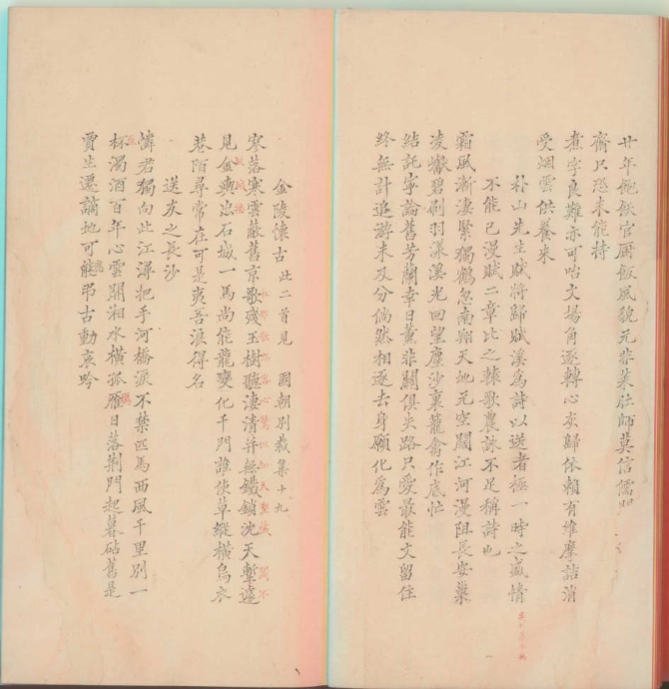 廿年飽飫官厨飯風貌元非菜肚師莫信儒
齋只恐未能持
煮字良難亦可咍文場角逐轉心灰歸依賴有維摩詰消
受烟雲供養來
朴山先生賦將歸賦溪為詩以送者極一時之盛情
不能已漫賦二章比之棘歌農詠不足稱詩也
霜風漸淒緊獨鶴忽南翔天地元空闊江河漫阻長安巢
凌巘碧刷羽漾溪光回望塵沙裏籠禽作底忙
結託寧論舊芳蘭幸日薰非關俱失路只愛敢能文留住
終無計追游未及分倘然相逐去身願化為雲
金陵懷古 此二首見 國朝別裁集十九
寥落寒雲蔽舊京歌殘玉樹聽淒清并無鐵鎖沈天塹遠
見金輿出石城一馬尚能龍變化千門誰使草縱橫烏衣
巷陌尋常在可是夷吾浪得名
送友之長沙
憐君獨向此江潯把手河橋淚不禁匹馬西風千里別一
杯濁酒百年心雲開湘水橫孤雁日落荆門起暮砧舊是
賈生遷謫地可能弔古動哀吟